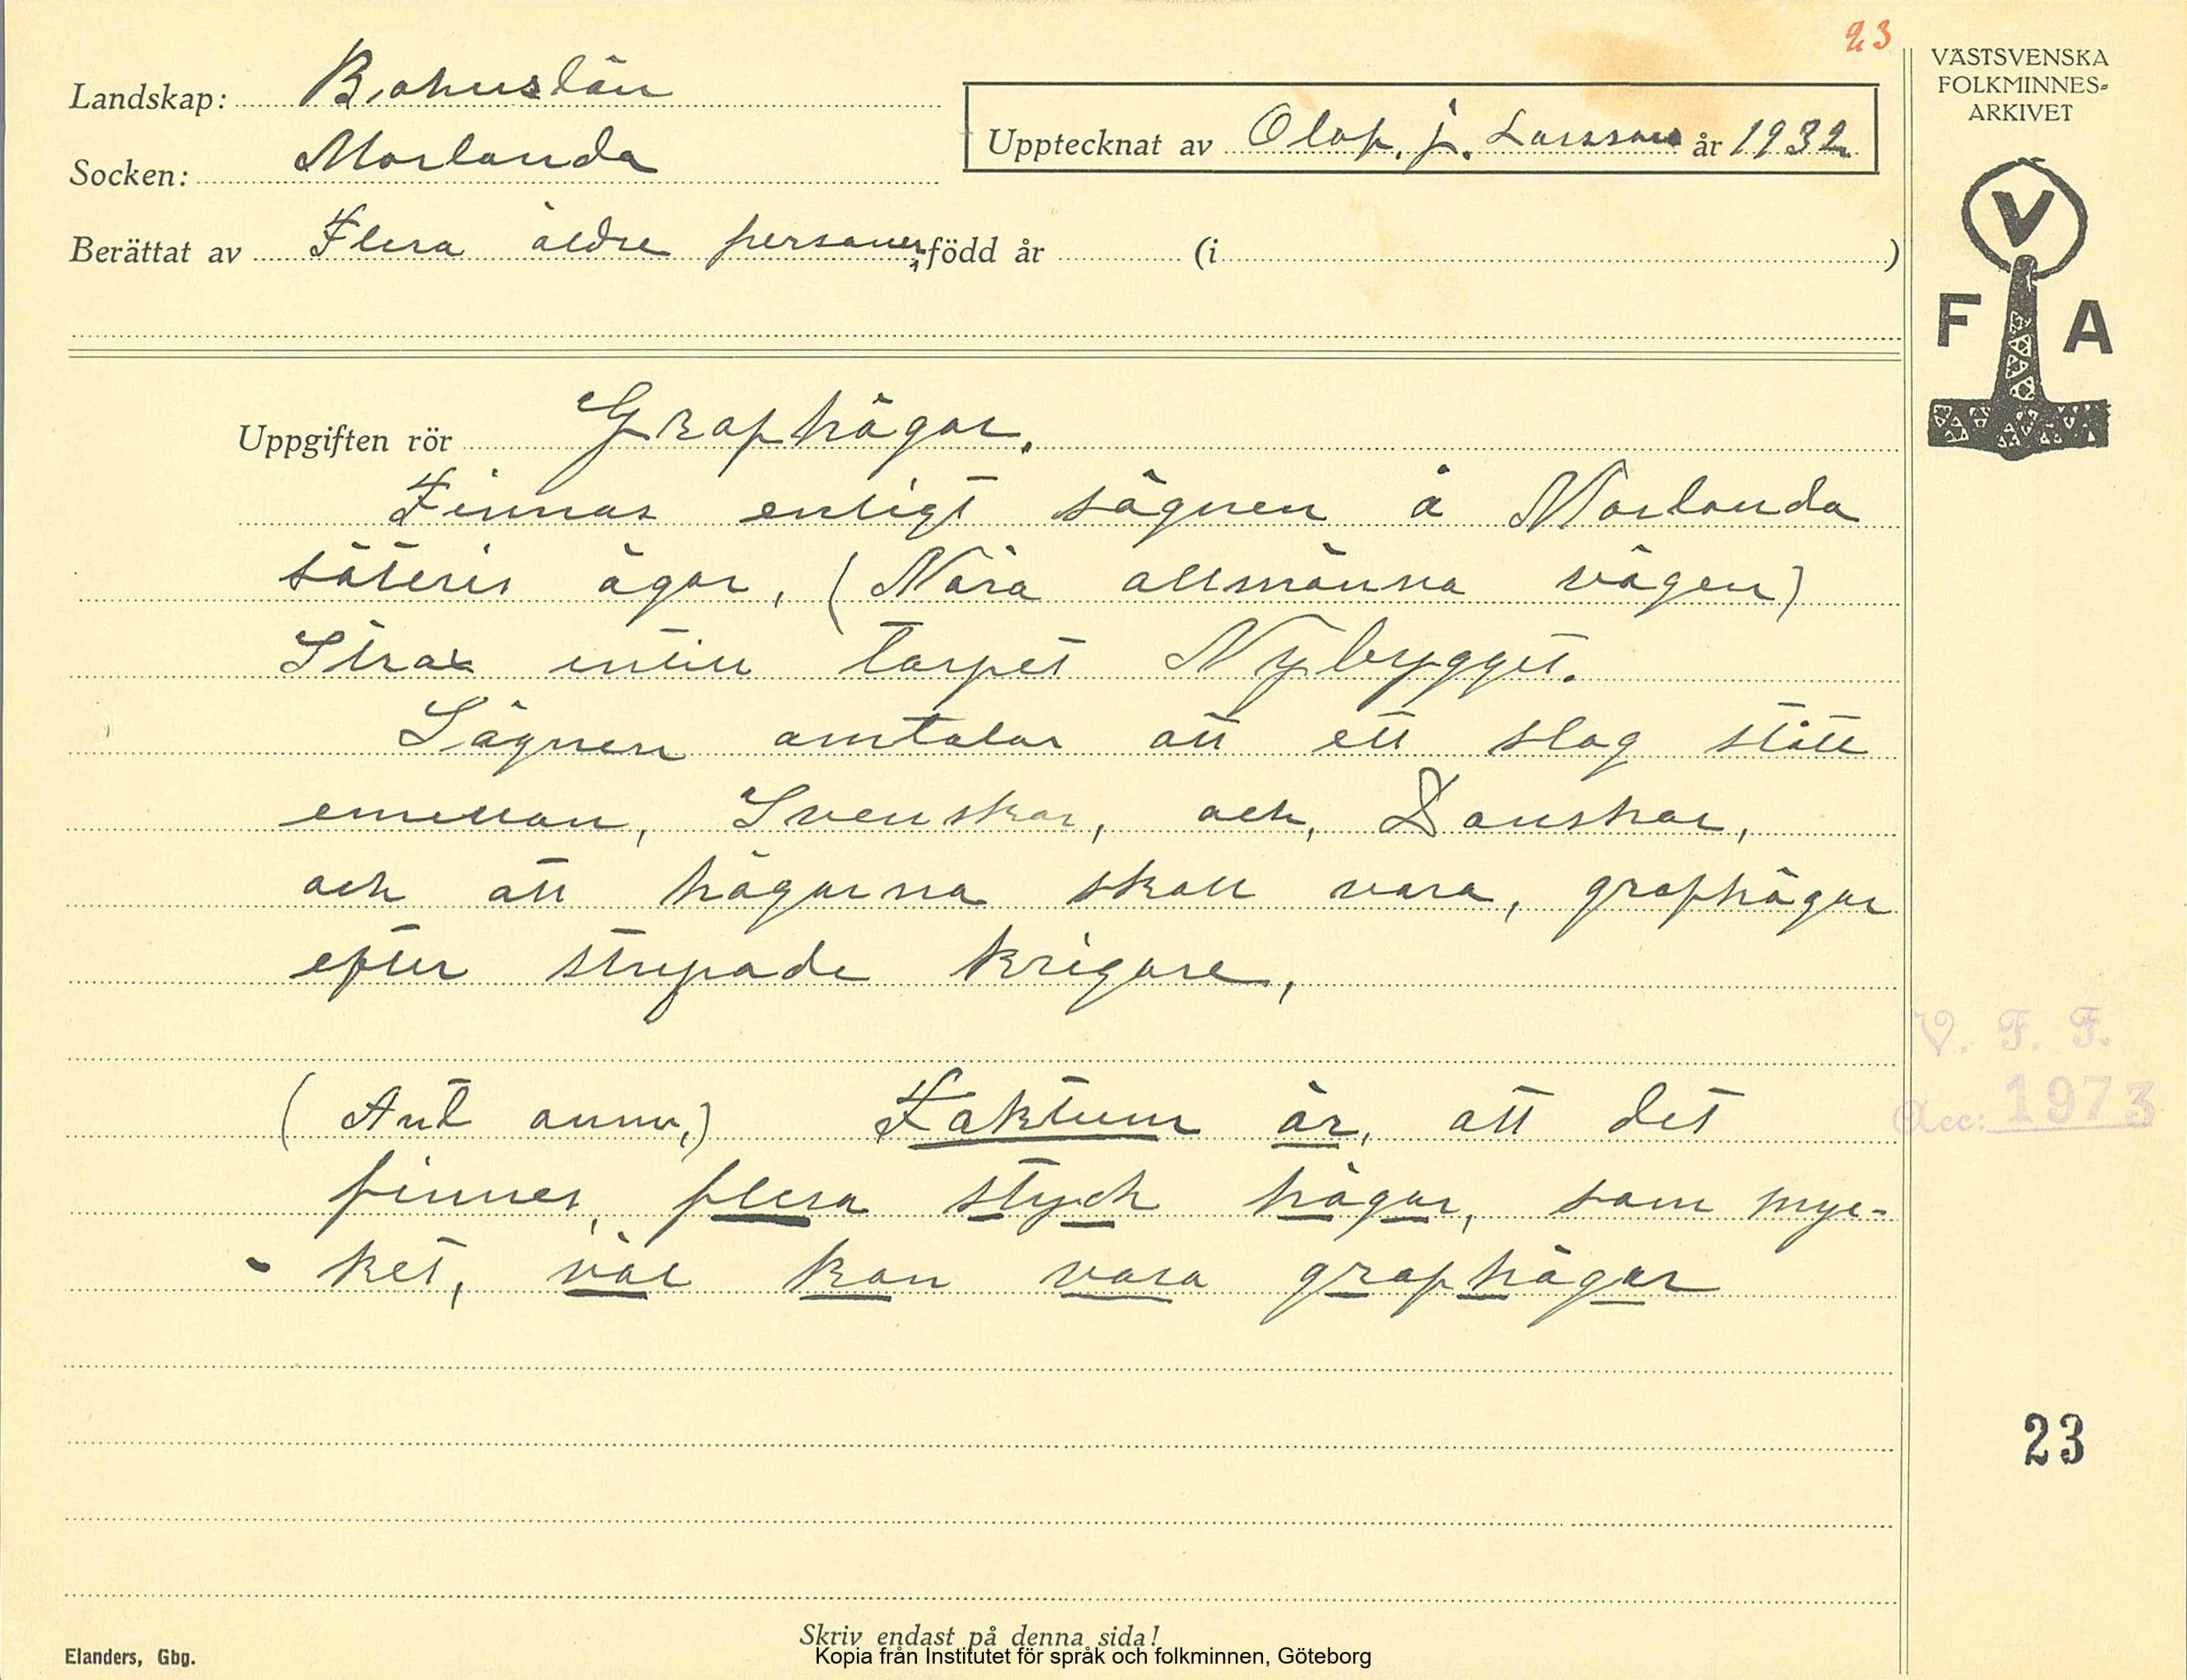 23
Landskap: Bohuslän
Socken: Morlanda
Upptecknat av Olof. j. Larsson år 1932
Berättat av Flera äldre personer, född år (i )
VÄSTSVENSKA
FOLKMINNES-
ARKIVET
V
F A
Uppgiften rör Grafhögar.
Finnas enligt sägnen å Morlanda
säteris ägor, (Nära allmänna vägen)
Strax intill torpet Nybygget.
Sägnen omtalar att ett slag stått
emellan, Svenskar, och, Danskar,
och att högarna skall vara, grafhögar
efter stupade krigare,
V. F. F.
Acc: 1973
(Ant anm,) Faktum är, att det
finnes, flera styck högar, som myc-
- ket, väl kan vara grafhögar
23
Skriv endast på denna sida!
Elanders, Gbg.
Kopia från Institutet för språk och folkminnen, Göteborg